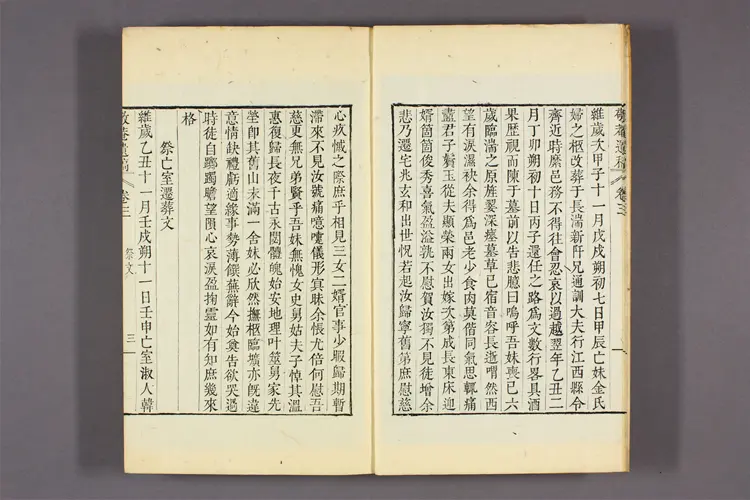 敬菴遺稿 卷三
維歲次甲子十一月戊戌朔初七日甲辰亡妹金氏
婦之柩改葬于長湍新阡兄通訓大夫行江西縣令
齊近時縻邑務不得往會忍哀以過越翌年乙丑二
月丁卯朔初十日丙子還任之路爲文數行畧具酒
果歷視而陳于墓前以告悲臆曰嗚呼吾妹喪已六
歲臨湍之原旌翣深瘞墓草已宿音容長逝喟然西
望有淚濕袂余得爲邑老少食肉莫偕同氣思輒痛
盡君子翳玉從夫顯榮兩女出嫁次第成長東床迎
婿箇箇俊秀喜氣盈溢孰不慰賀汝獨不見徒增余
悲乃遷宅兆玄和出世怳若起汝歸寧舊第庶慰慈
心疚懺之際庶乎相見三女二婿官事少暇歸期暫
滯來不見汝號痛噫嚱儀形寘昧余悵尤倍何慰吾
慈更無兄弟賢乎吾妹無愧女史舅姑夫子悼其溫
惠復歸長夜千古永閟體魄始安地理叶筮舅家先
塋卽其舊山未滿一舍妹必欣然撫柩臨壙亦旣違
意情缺禮虧適緣事勢薄饌蕪辭今始奠告欲哭過
時徒自躑躅瞻望隕心哀淚盈掬靈如有知庶幾來
格
祭亡室遷葬文
維歲乙丑十一月壬戌朔十一日壬申亡室淑人韓
敬菴遺稿 卷三 祭文 三